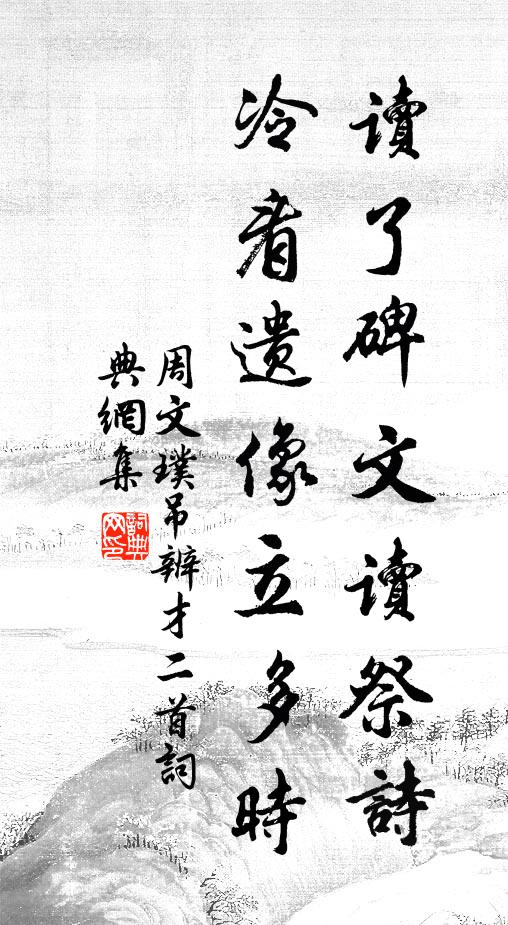 讀了碑文讀祭詩
冷看遺像立多時
周文璞吊辨才二首詞
典網集
詞典
网印